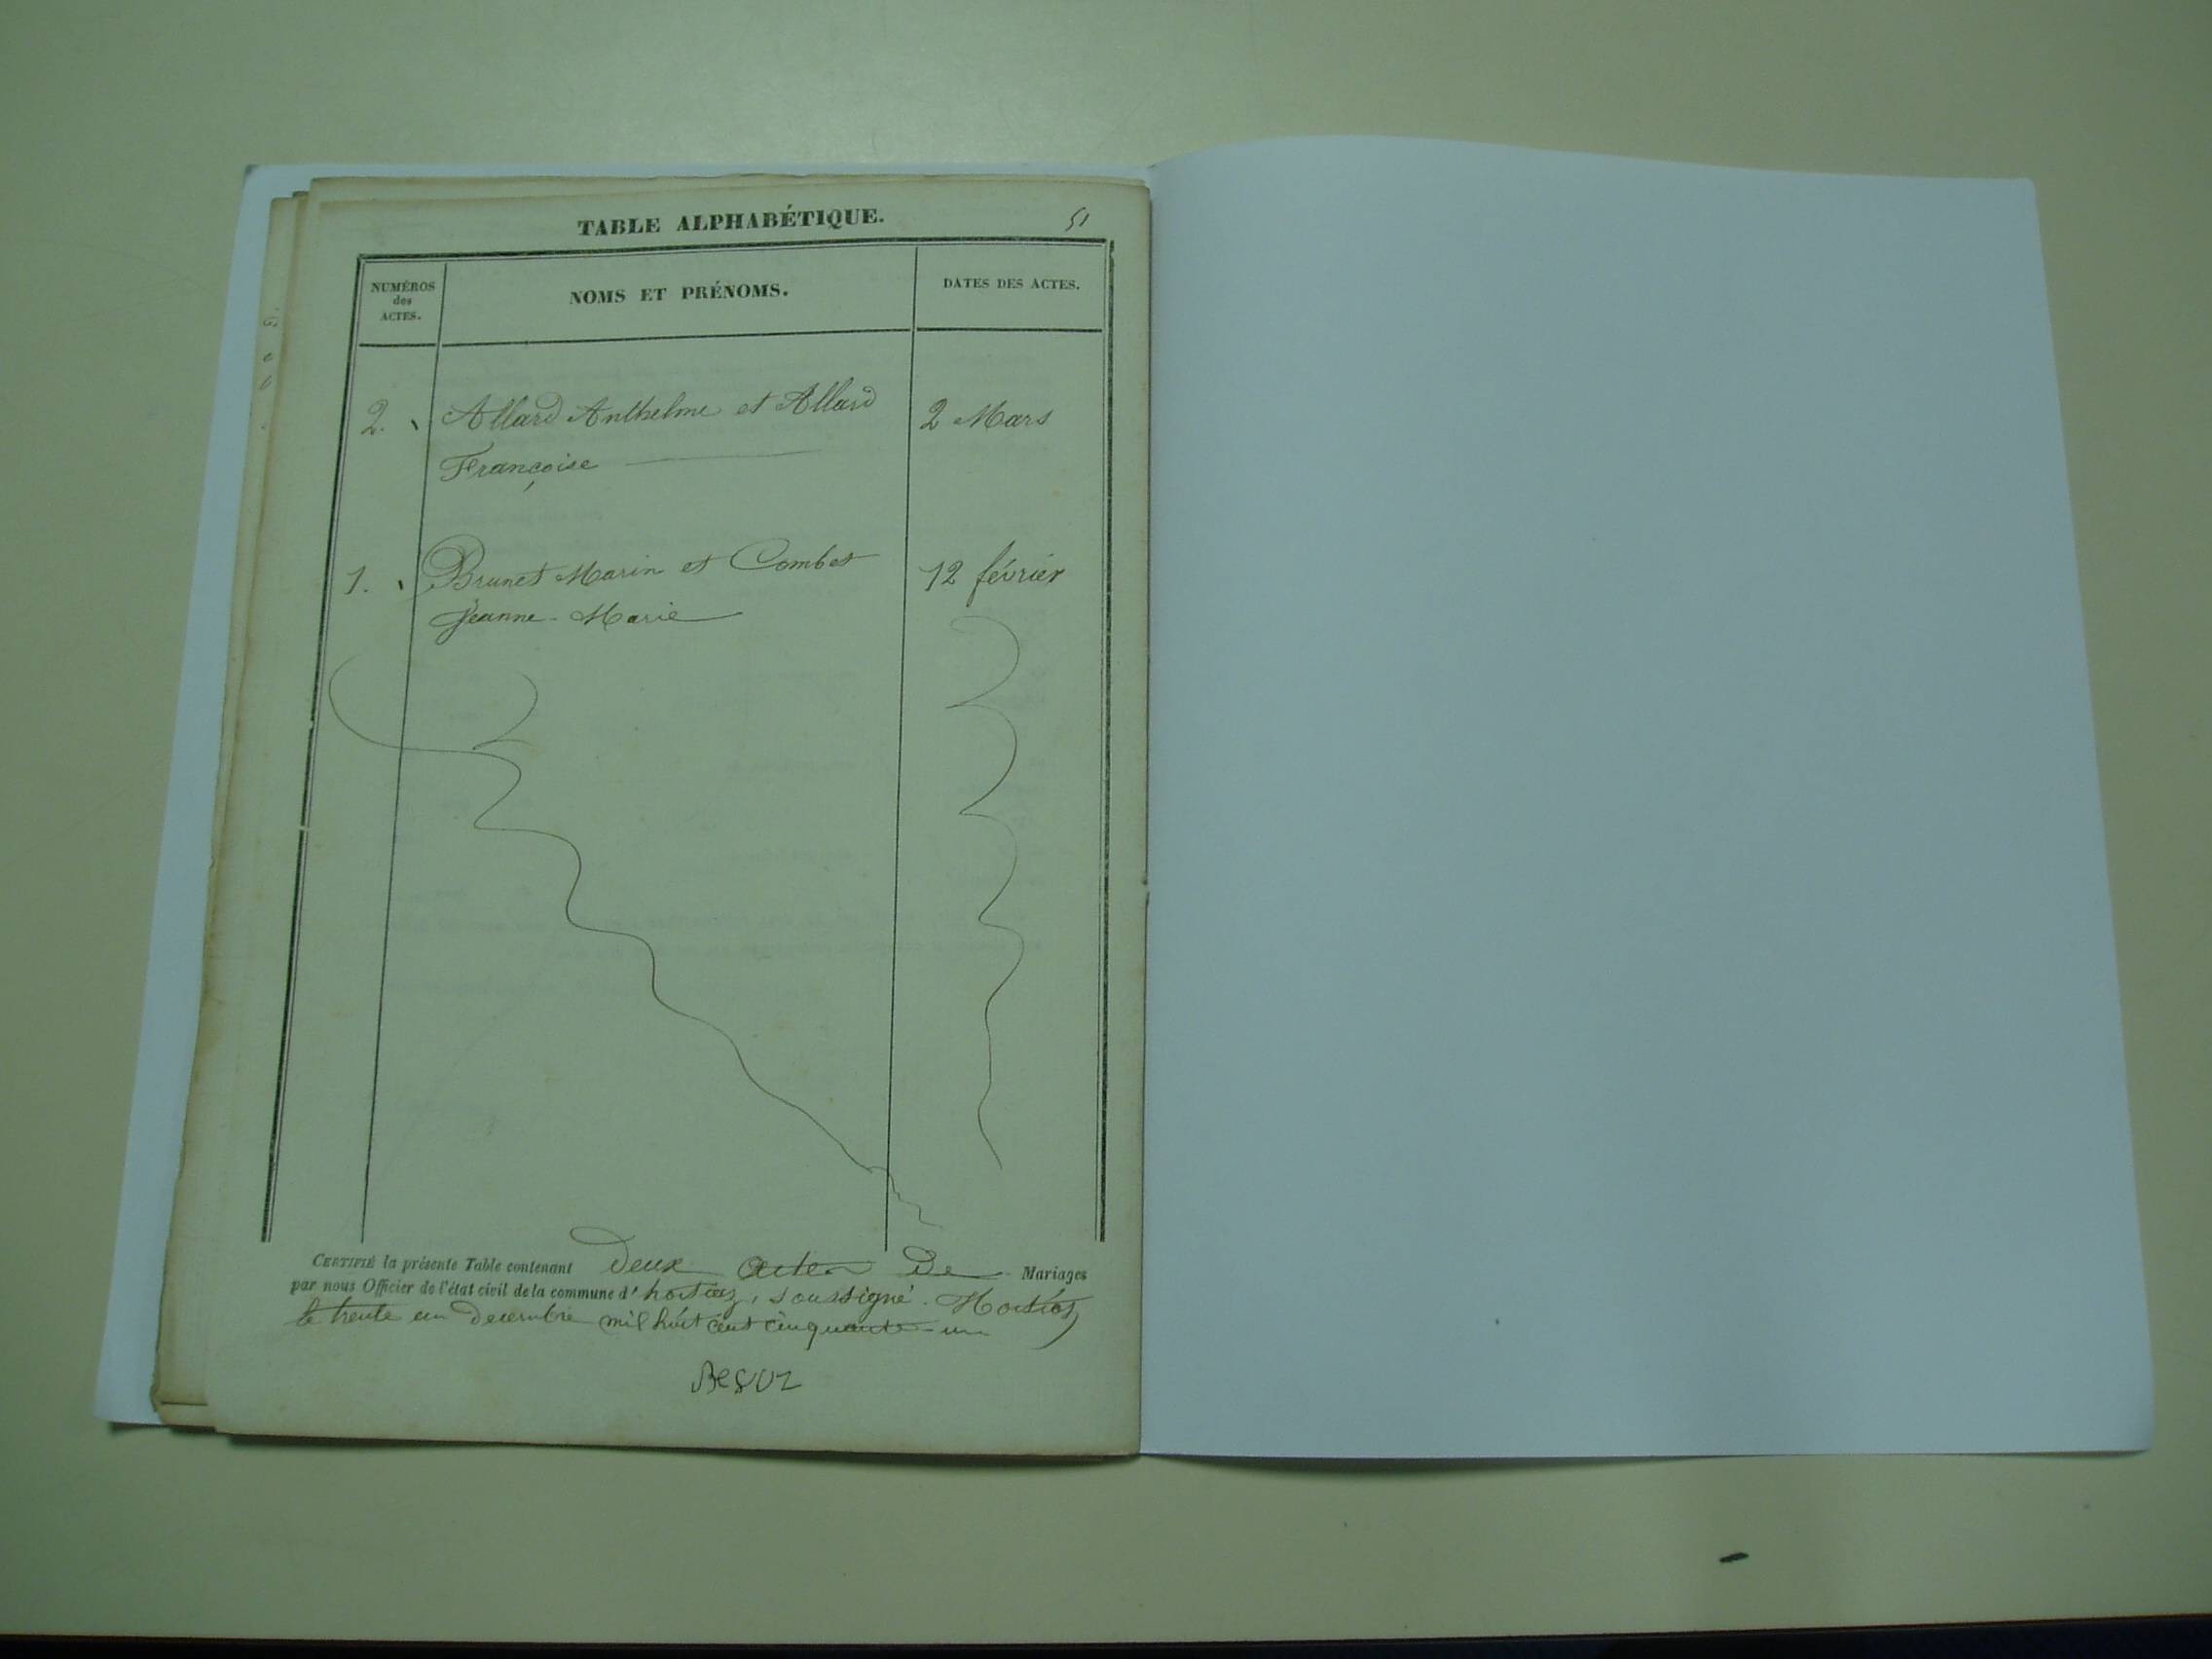 TABLE ALPHABÉTIQUE.
51
NUMÉROS
des
ACTES.
NOMS ET PRÉNOMS.
DATES DES ACTES.
2. Allard Anthelme et Allard 2 Mars
Françoise
1. Brunet Marin et Combet 12 février
Jeanne-Marie
CERTIFIÉ la présente Table contenant Deux actes De Mariages
par nous Officier de l'état civil de la commune d' hostiaz, soussigné. Hostiaz,
le trente un Decembre mil huit cent cinquante-un